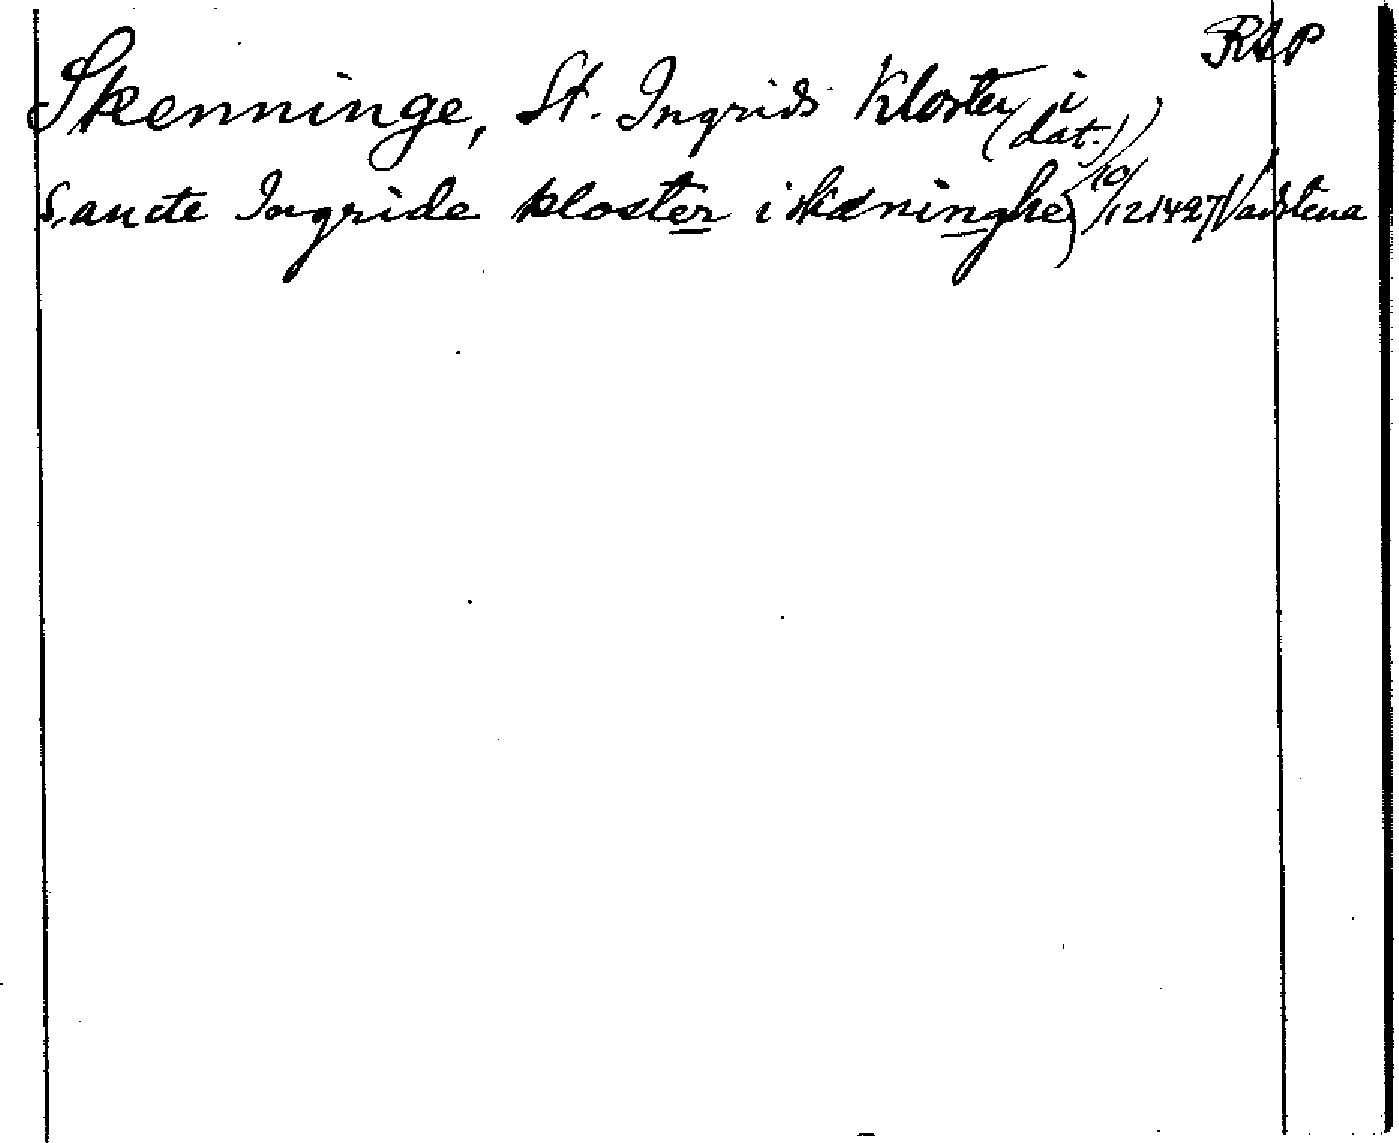 RAP
Skenninge, St. Ingrids Kloster i
(dat.)
Sancte Ingride kloster i skæninghe) 10/12 1427 Vadstena